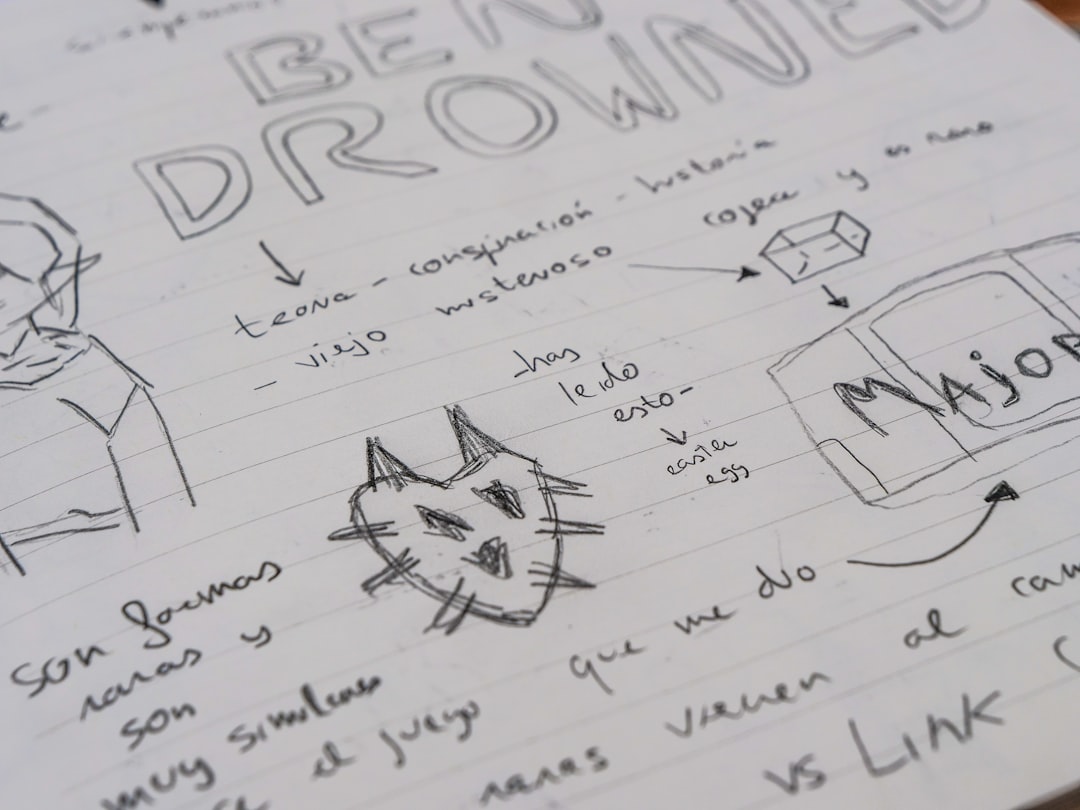 BEN
DROWNED
teoria - conspiración - historia
- viejo misterioso
cogea y es raro
-has
leido
esto-
easter
egg
MAJOR
son formas
raras y
son
muy similares
el juego
que me dio
raras vienen al cam
vs LINK